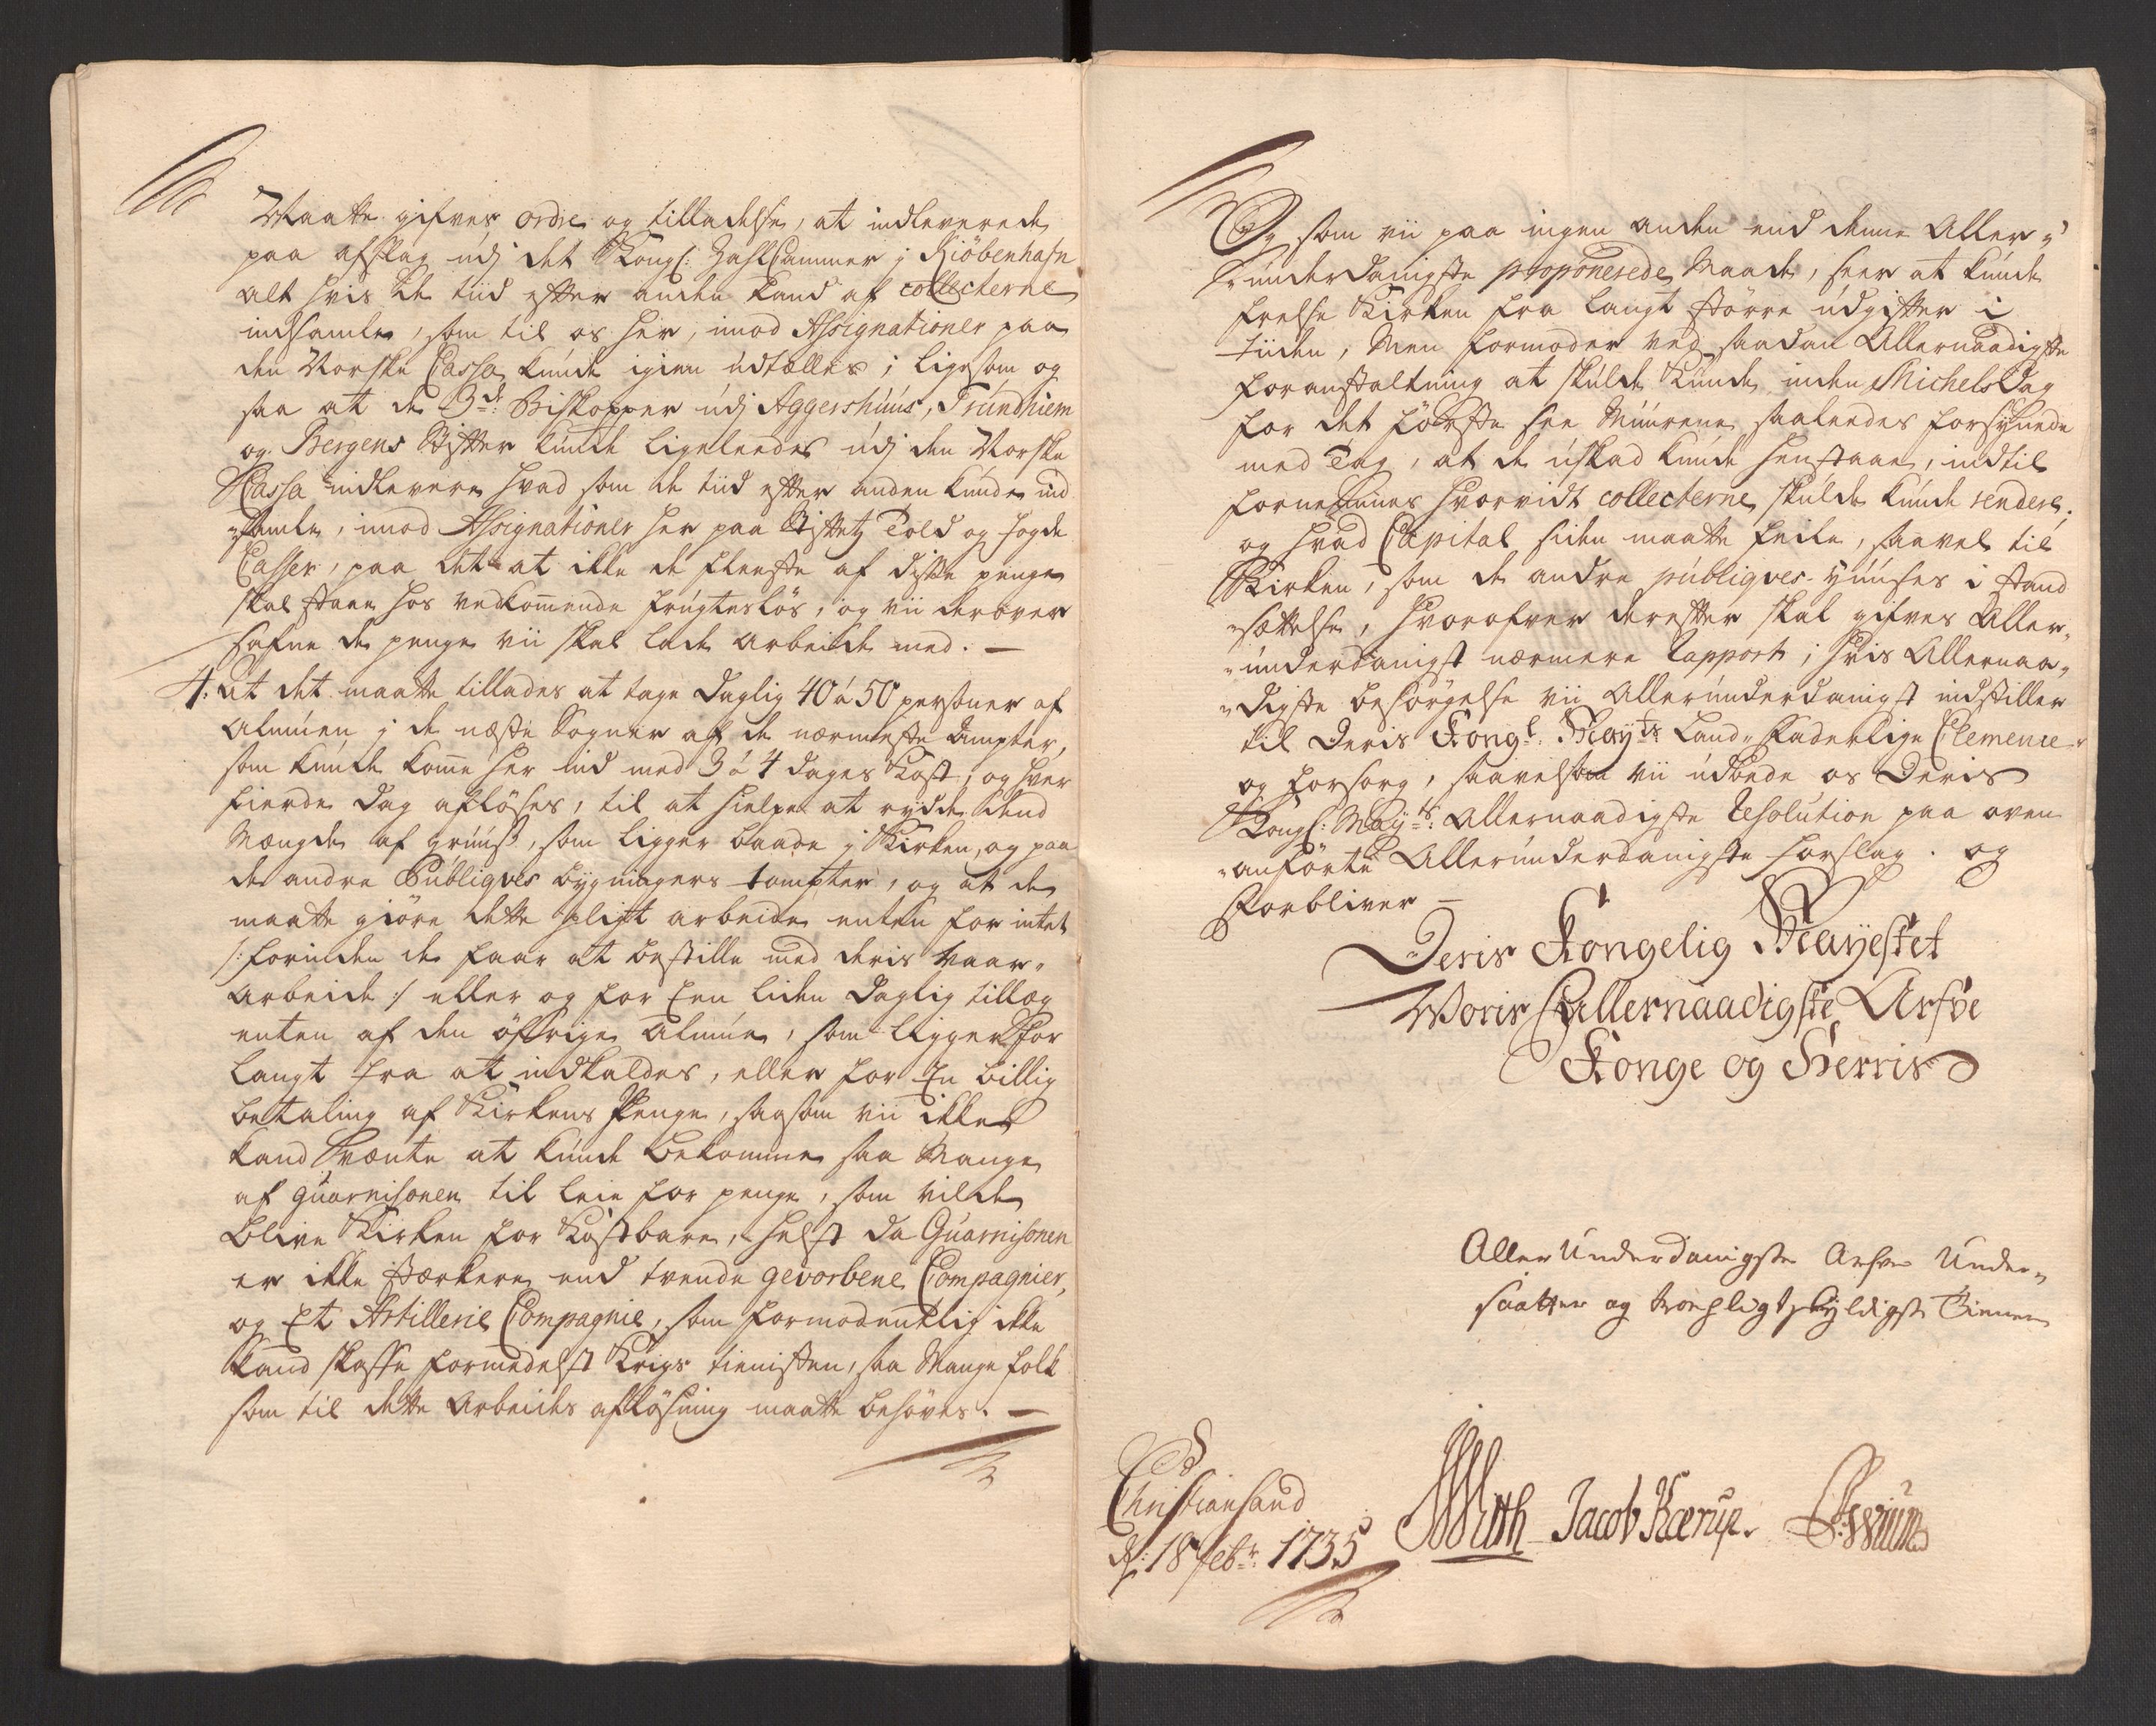 Maatte gifves ordre og tilladelse, at indleverede
paa afslag udj det Kongl: Zahl Cammer j Kiöbenhafn
alt hvis de tiid efter anden kand af collecterne
indsamle, som til os her, imod Assignationer paa
den Norske Cassa kunde igien udtælles; ligesom og
saa at de 3de: Biskopper udj Aggershuus, Trundhiem
og Bergens Stifter kunde ligeleedes udj den Norske
Cassa indlevere hvad som de tiid efter anden kunde ind
samle, imod Assignationer her paa Stiftetz Told og fogde
Casser, paa det at ikke de fleeste af diste penge
skal staae hos vedkommende frugtesløs, og vii derover
hafne de penge vii skal lade arbeide med. —
4. At det maatte tillades at tage daglig 40 á 50 personer af
Almuen j de næste Sogner af de nærmeste Ampter,
som kunde komme her ind med 3 á 4 dages Kost, og hver
fierde dag afløses, til at hielpe at rydde dend
Mængde af gruus, som ligger baade j Kirken, og paa
de andre Publiqves bygningers tompter, og at de
maatte giöre dette pligt arbeide enten for intet
/: forinden de faar at bestille med deris Vaar-
Arbeide :/ eller og for Een liden daglig tillæg
enten af den öfrige Almue, som ligger for
langt fra at indkaldes, eller for En billig
betaling af Kirkens Penge, saasom vii ikke
kand vænte at kunde bekomme saa Mange
af guarnisonen til leie for penge, som vilde
blive Kirken for Kostbare, helst da Guarnisonen
er ikke stærkere end tvende gevorbene Compagnier,
og Et Artillerie Compagnie, som formodentlig ikke
kand skaffe formedelst Krigs tienisten, saa Mange folk
som til dette Arbeides afløsning maatte behøves. —
Og som vii paa ingen anden end denne Aller-
underdanigste proponerede Maade, seer at kunde
frelse Kirken fra langt större udgifter i
tiiden, Men formoder ved saadan Allernaadigste
foranstaltning at skulde kunde inden Michels Dag
for det første see Muurene saaleedes forsynede
med Tag, at de uskad kunde henstaae, indtil
fornemmes hvorvidt collecterne skulde kunde rendere,
og hvad Capital siden maatte feile, saavel til
Kirken, som de andre publiqves Huuses i stand
sættelse, hvorofver derefter skal gifves Aller-
underdanigst nærmere Rapport; hvis Allernaa-
digste besørgelse vii Allerunderdanigst indstiller
til Deris Kongl: Mayts: Land-Faderlige Clemence
og forsorg, saavelsom vii udbede os Deris
Kongl: Mayts: Allernaadigste Resolution paa oven
anförte Allerunderdanigste forslag. og
Forbliver —
Deris Kongelig Mayestet
Woris Allernaadigste Arfve
Konge og Herris
Aller Underdanigste Arfve Under-
saatter og troepligtskyldigste Tienere
Christiansand
d: 18 febr: 1735
Jacob Kærup.